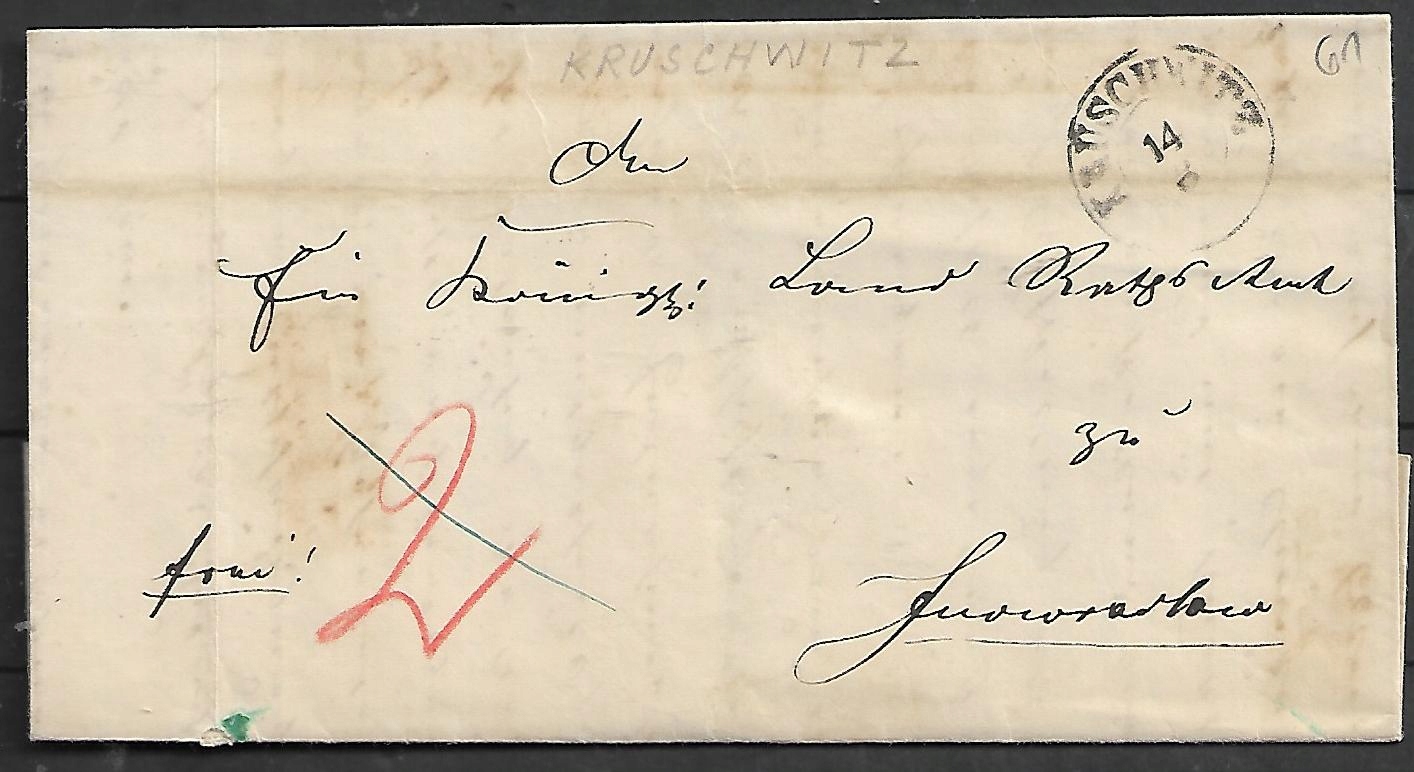 KRUSCHWITZ
61
KRUSCHWITZ
14
6
An
Ein Königl: Land Raths Amt
zu
frei!
2
Inowraclaw